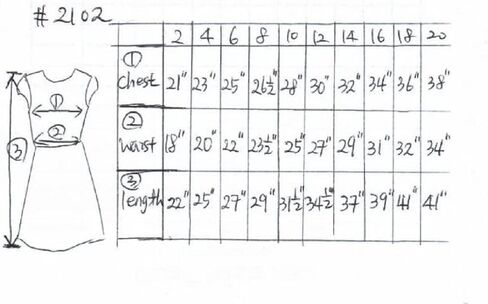 #2102
2 4 6 8 10 12 14 16 18 20
① chest 21" 23" 25" 26½" 28" 30" 32" 34" 36" 38"
② waist 18" 20" 22" 23½" 25" 27" 29" 31" 32" 34"
③ length 22" 25" 27" 29" 31½" 34½" 37" 39" 41" 41"
①
②
③